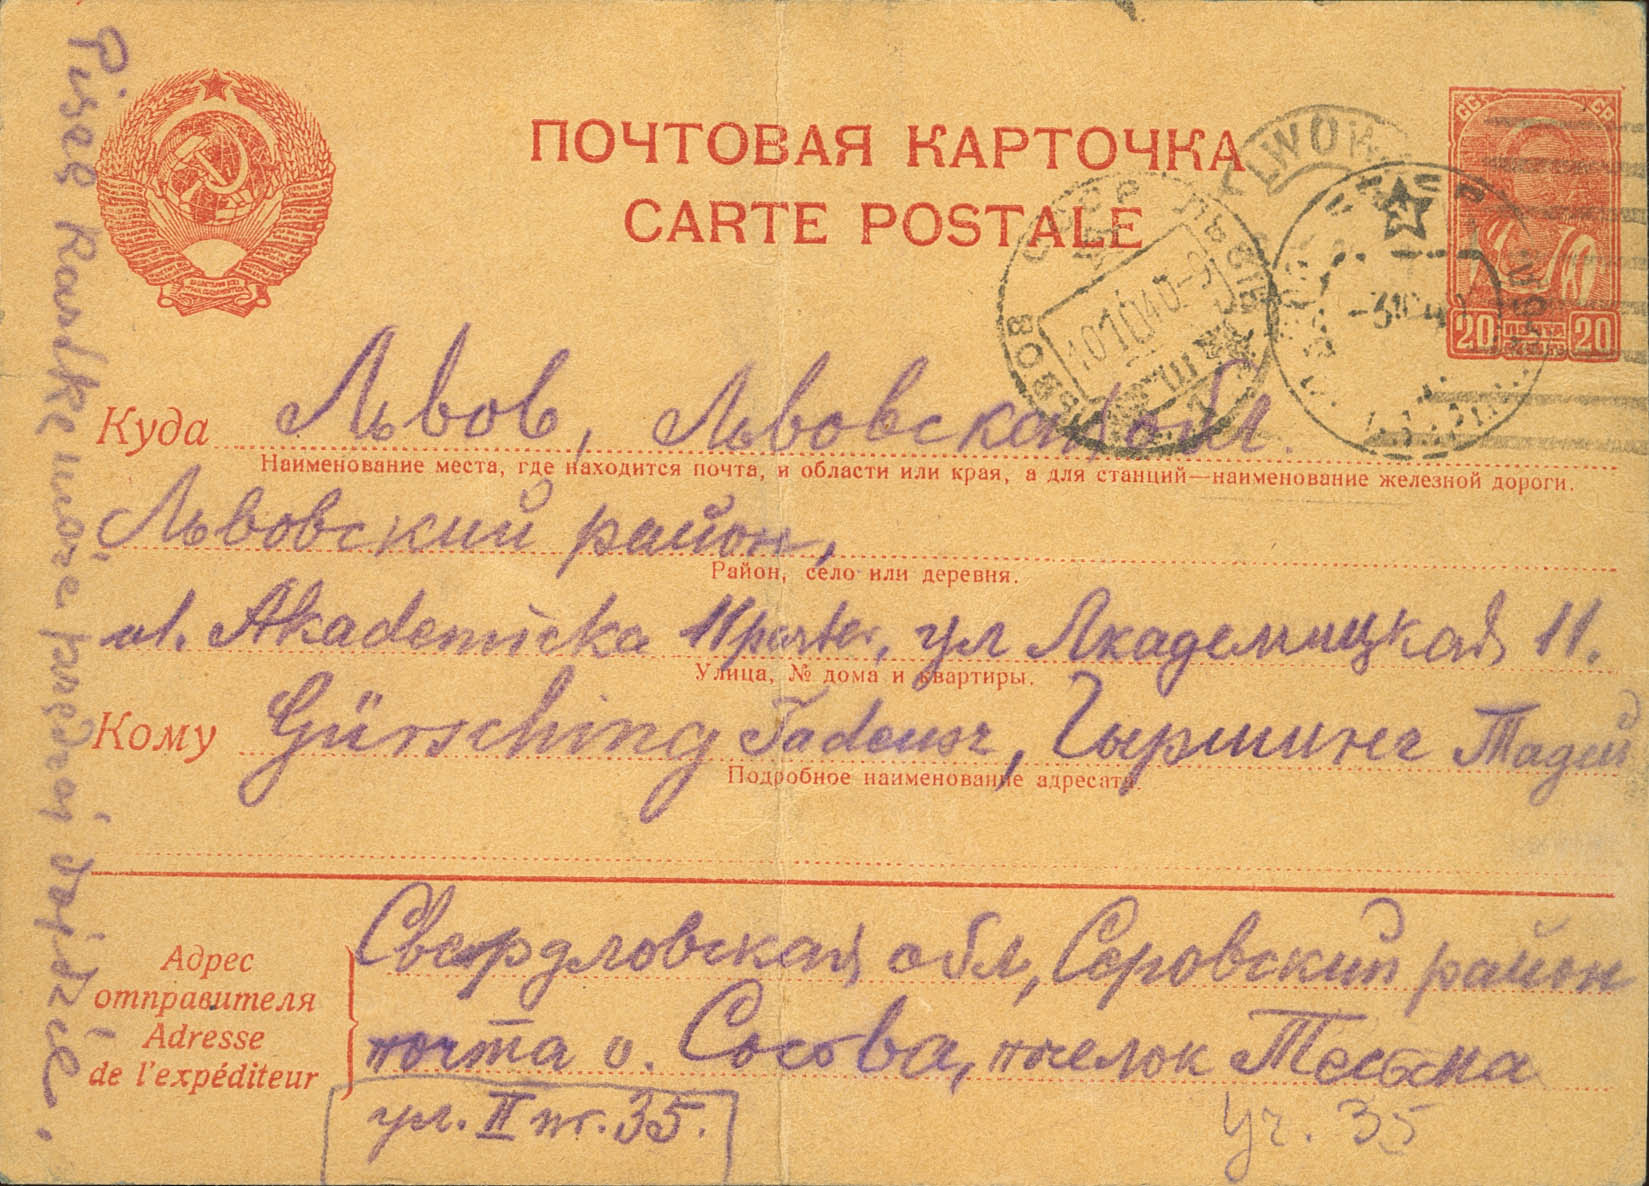 ПОЧТОВАЯ КАРТОЧКА
CARTE POSTALE
20 ПОЧТА 20
LWOW
Куда Львов, Львовская обл.
Наименование места, где находится почта, и области или края, а для станций—наименование железной дороги.
Львовский район,
Район, село или деревня.
ul. Akademicka 11 parter, ул Академицкая 11.
Улица, № дома и квартиры.
Кому Gürsching Tadeusz, Гыршинг Тадеуш
Подробное наименование адресата.
Адрес
отправителя
Adresse
de l'expéditeur
Свердловская обл, Серовский район
почта о. Сосьва, поселок Тесьма
ул. II № 35.
уч. 35
Piszę kartkę może prędzej dojdzie.